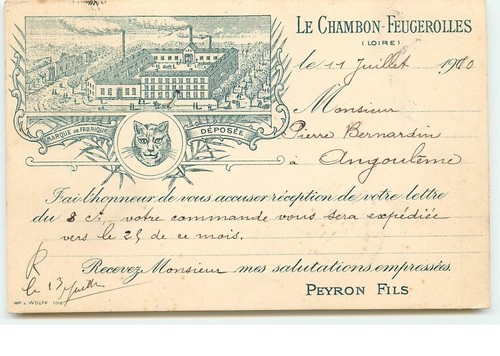 LE CHAMBON-FEUGEROLLES
(LOIRE)
le 11 Juillet 1910
Monsieur
Pierre Bernardin
à Angoulême
MARQUE DE FABRIQUE DÉPOSÉE
J'ai l'honneur de vous accuser réception de votre lettre
du 8 ct, votre commande vous sera expédiée
vers le 25 de ce mois.
Recevez Monsieur mes salutations empressées.
PEYRON FILS
R
le 13 Juillet
IMP. L. WOLFF